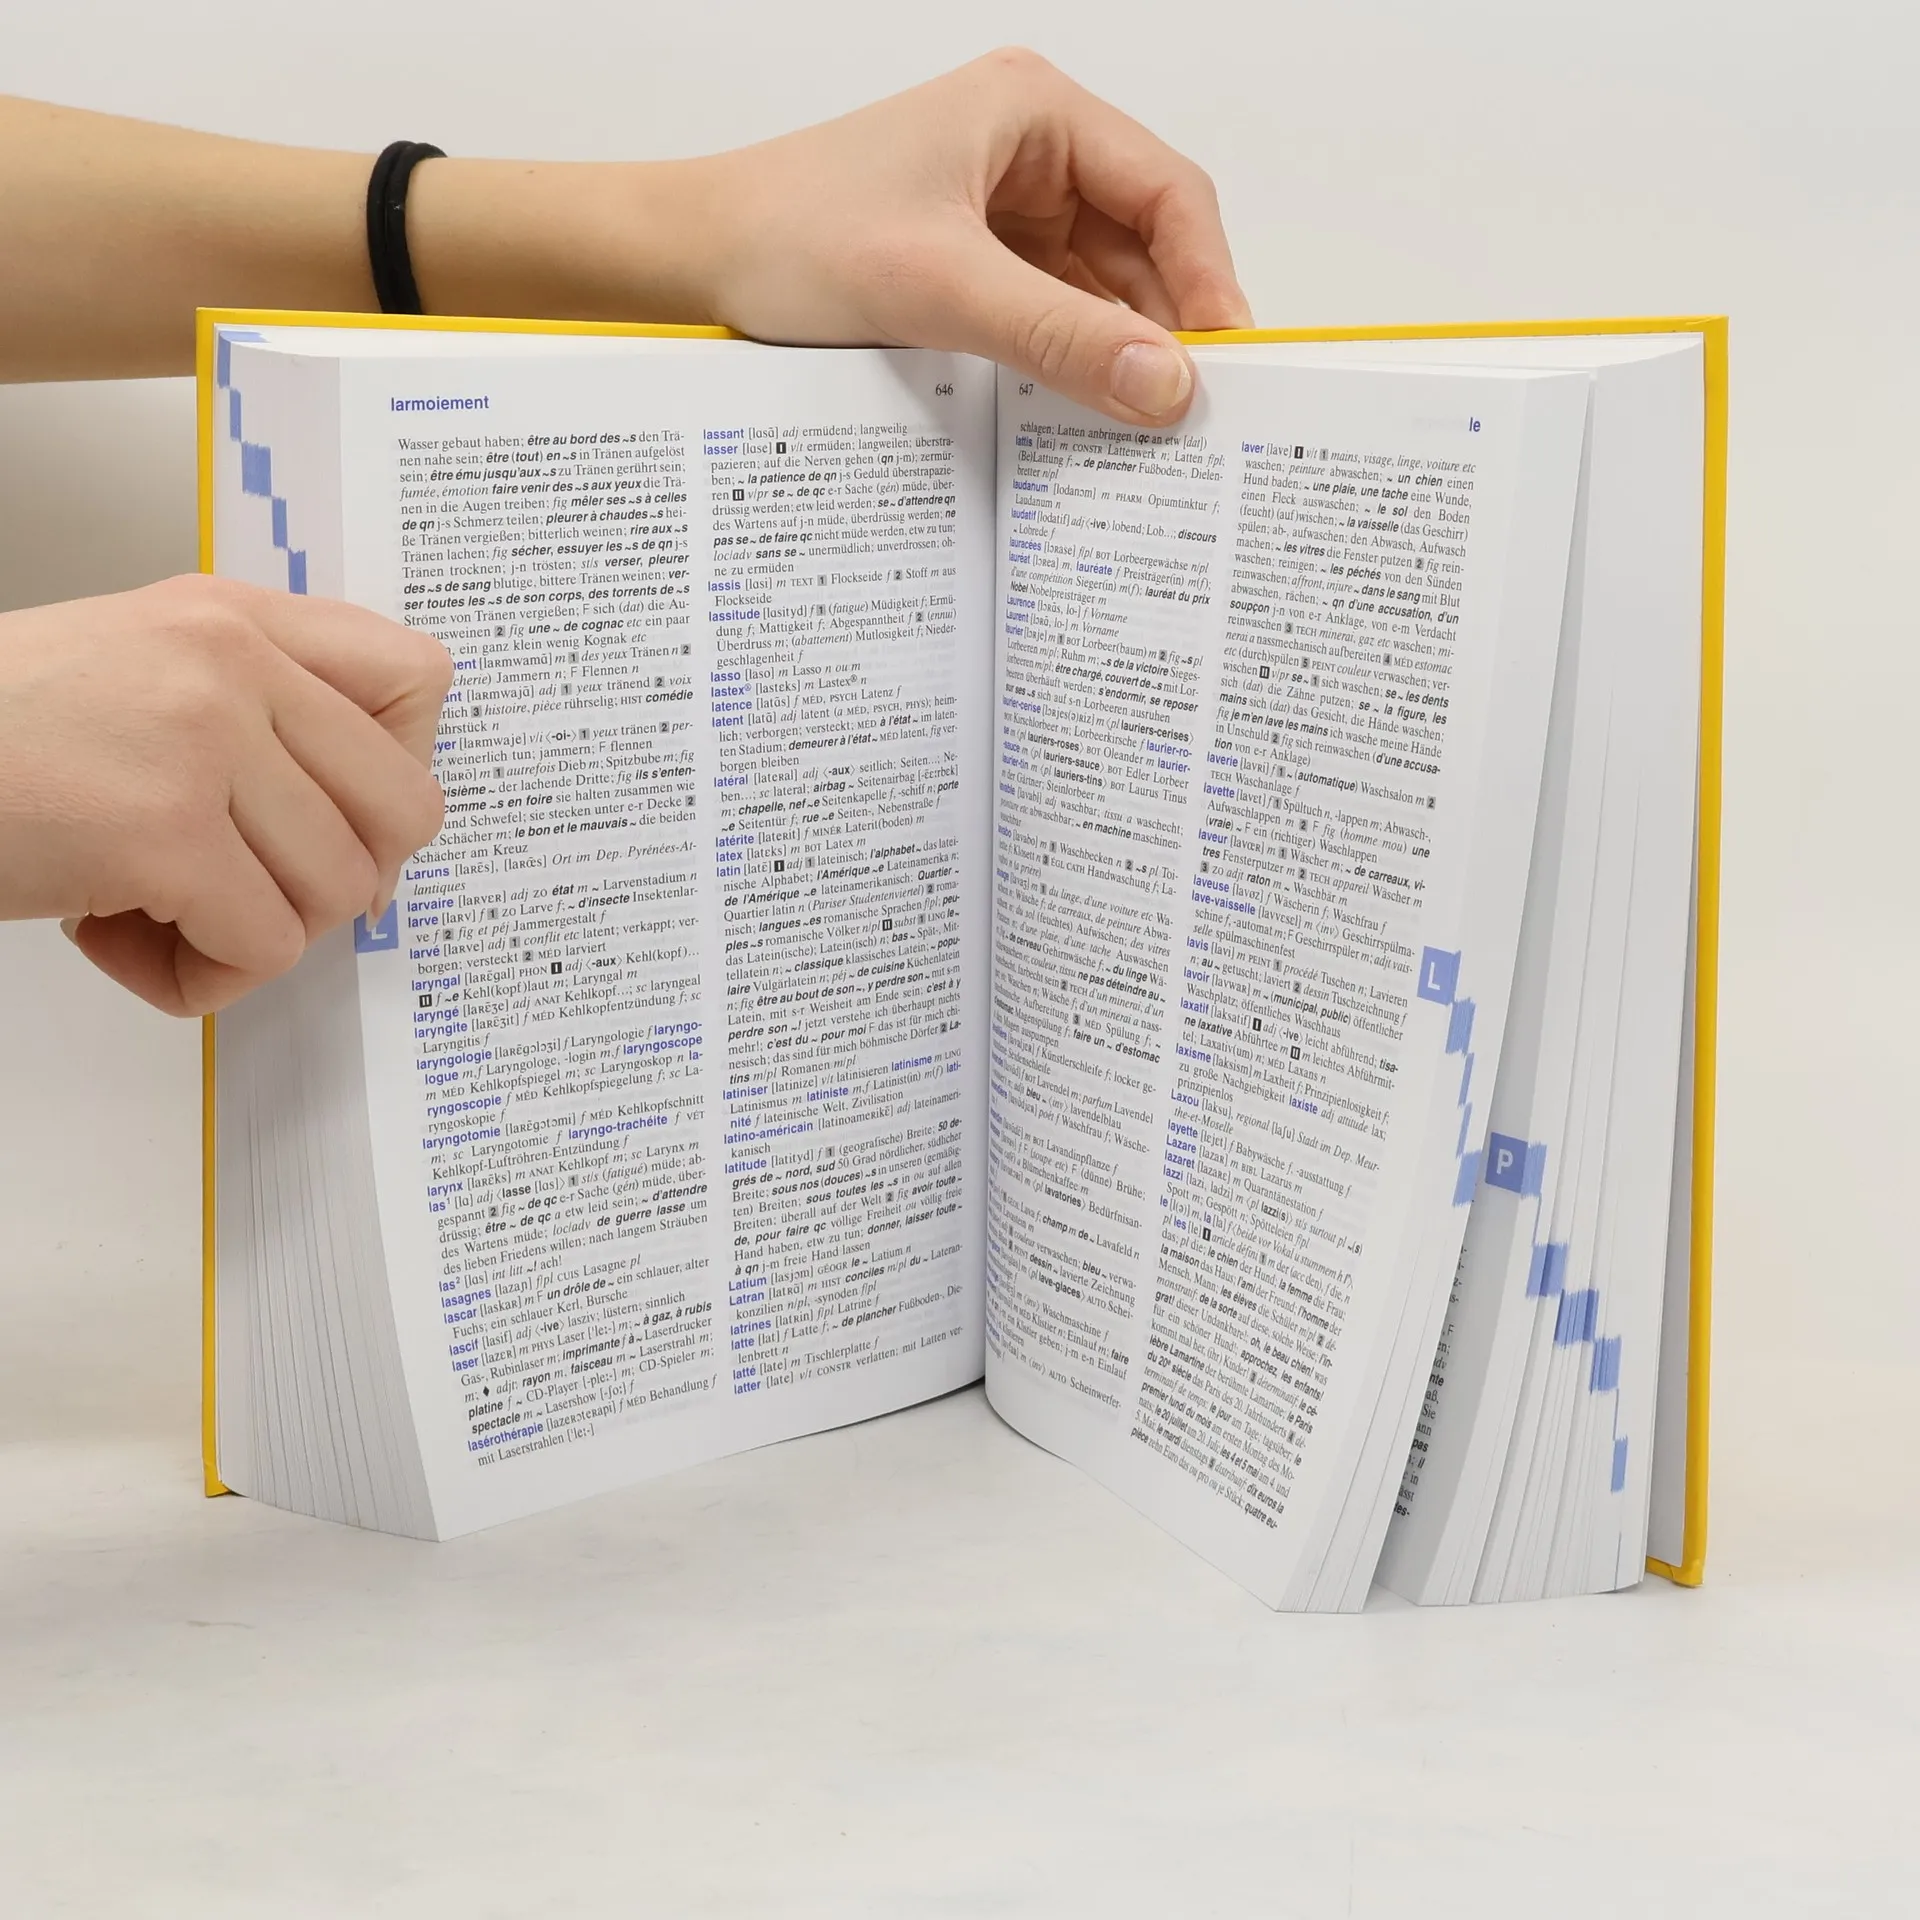 larmoiement
646
Wasser gebaut haben; être au bord des ~s den Trä-
nen nahe sein; être (tout) en ~s in Tränen aufgelöst
sein; être ému jusqu'aux ~s zu Tränen gerührt sein;
fumée, émotion faire venir des ~s aux yeux die Trä-
nen in die Augen treiben; fig mêler ses ~s à celles
de qn j-s Schmerz teilen; pleurer à chaudes ~s hei-
ße Tränen vergießen; bitterlich weinen; rire aux ~s
Tränen lachen; fig sécher, essuyer les ~s de qn j-s
Tränen trocknen; j-n trösten; st/s verser, pleurer
des ~s de sang blutige, bittere Tränen weinen; ver-
ser toutes les ~s de son corps, des torrents de ~s
Ströme von Tränen vergießen; F sich (dat) die Au-
ausweinen 2 fig une ~ de cognac etc ein paar
ein ganz klein wenig Kognak etc
ent [laʀmwamɑ̃] m 1 des yeux Tränen n 2
cherie) Jammern n; F Flennen n
ant [laʀmwajɑ̃] adj 1 yeux tränend 2 voix
rlich 3 histoire, pièce rührselig; HIST comédie
ührstück n
oyer [laʀmwaje] v/i ‹-oi-› 1 yeux tränen 2 per-
weinerlich tun; jammern; F flennen
[laʀõ] m 1 autrefois Dieb m; Spitzbube m; fig
oisième ~ der lachende Dritte; fig ils s'enten-
comme ~s en foire sie halten zusammen wie
und Schwefel; sie stecken unter e-r Decke 2
Schächer m; le bon et le mauvais ~ die beiden
Schächer am Kreuz
Laruns [laʀɛ̃s], [laʀœ̃s] Ort im Dep. Pyrénées-At-
lantiques
larvaire [laʀvɛʀ] adj ZO état m ~ Larvenstadium n
larve [laʀv] f 1 ZO Larve f; ~ d'insecte Insektenlar-
ve f 2 fig et péj Jammergestalt f
larvé [laʀve] adj 1 conflit etc latent; verkappt; ver-
borgen; versteckt 2 MÉD larviert
laryngal [laʀɛ̃gal] PHON I adj ‹-aux› Kehl(kopf)...
II f ~e Kehl(kopf)laut m; Laryngal m
laryngé [laʀɛ̃ʒe] adj ANAT Kehlkopf...; sc laryngeal
laryngite [laʀɛ̃ʒit] f MÉD Kehlkopfentzündung f; sc
Laryngitis f
laryngologie [laʀɛ̃gɔlɔʒi] f Laryngologie f laryngo-
logue m,f Laryngologe, -login m,f laryngoscope
m MÉD Kehlkopfspiegel m; sc Laryngoskop n la-
ryngoscopie f MÉD Kehlkopfspiegelung f; sc La-
ryngoskopie f
laryngotomie [laʀɛ̃gɔtɔmi] f MÉD Kehlkopfschnitt
m; sc Laryngotomie f laryngo-trachéite f VÉT
Kehlkopf-Luftröhren-Entzündung f
larynx [laʀɛ̃ks] m ANAT Kehlkopf m; sc Larynx m
las¹ [lɑ] adj ‹lasse [lɑs]› 1 st/s (fatigué) müde; ab-
gespannt 2 fig ~ de qc e-r Sache (gén) müde, über-
drüssig; être ~ de qc a etw leid sein; ~ d'attendre
des Wartens müde; loc/adv de guerre lasse um
des lieben Friedens willen; nach langem Sträuben
las² [lɑs] int litt ~! ach!
lasagnes [lazaɲ] f/pl CUIS Lasagne pl
lascar [laskaʀ] m F un drôle de ~ ein schlauer, alter
Fuchs; ein schlauer Kerl, Bursche
lascif [lasif] adj ‹-ive› lasziv; lüstern; sinnlich
laser [lazɛʀ] m PHYS Laser ['le:-] m; ~ à gaz, à rubis
Gas-, Rubinlaser m; imprimante f à ~ Laserdrucker
m; ♦ adjt: rayon m, faisceau m ~ Laserstrahl m;
platine f ~ CD-Player [-ple:-] m; CD-Spieler m;
spectacle m ~ Lasershow [-ʃo:] f
lasérothérapie [lazeʀɔteʀapi] f MÉD Behandlung f
mit Laserstrahlen ['le:-]
lassant [lɑsɑ̃] adj ermüdend; langweilig
lasser [lɑse] I v/t ermüden; langweilen; überstra-
pazieren; auf die Nerven gehen (qn j-m); zermür-
ben; ~ la patience de qn j-s Geduld überstrapazie-
ren II v/pr se ~ de qc e-r Sache (gén) müde, über-
drüssig werden; etw leid werden; se ~ d'attendre qn
des Wartens auf j-n müde, überdrüssig werden; ne
pas se ~ de faire qc nicht müde werden, etw zu tun;
loc/adv sans se ~ unermüdlich; unverdrossen; oh-
ne zu ermüden
lassis [lɑsi] m TEXT 1 Flockseide f 2 Stoff m aus
Flockseide
lassitude [lɑsityd] f 1 (fatigue) Müdigkeit f; Ermü-
dung f; Mattigkeit f; Abgespanntheit f 2 (ennui)
Überdruss m; (abattement) Mutlosigkeit f; Nieder-
geschlagenheit f
lasso [laso] m Lasso n ou m
lastex® [lasteks] m Lastex® n
latence [latɑ̃s] f MÉD, PSYCH Latenz f
latent [latɑ̃] adj latent (a MÉD, PSYCH, PHYS); heim-
lich; verborgen; versteckt; MÉD à l'état ~ im laten-
ten Stadium; demeurer à l'état ~ MÉD latent, fig ver-
borgen bleiben
latéral [lateʀal] adj ‹-aux› seitlich; Seiten...; Ne-
ben...; sc lateral; airbag ~ Seitenairbag [-ɛ:rbɛk]
m; chapelle, nef ~e Seitenkapelle f, -schiff n; porte
~e Seitentür f; rue ~e Seiten-, Nebenstraße f
latérite [lateʀit] f MINÉR Laterit(boden) m
latex [lateks] m BOT Latex m
latin [latɛ̃] I adj 1 lateinisch; l'alphabet ~ das latei-
nische Alphabet; l'Amérique ~e Lateinamerika n;
de l'Amérique ~e lateinamerikanisch; Quartier ~
Quartier latin n (Pariser Studentenviertel) 2 roma-
nisch; langues ~es romanische Sprachen f/pl; peu-
ples ~s romanische Völker n/pl II subst 1 LING le ~
das Latein(ische); Latein(isch) n; bas ~ Spät-, Mit-
tellatein n; ~ classique klassisches Latein; ~ popu-
laire Vulgärlatein n; péj ~ de cuisine Küchenlatein
n; fig être au bout de son ~, y perdre son ~ mit s-m
Latein, mit s-r Weisheit am Ende sein; c'est à y
perdre son ~! jetzt verstehe ich überhaupt nichts
mehr!; c'est du ~ pour moi F das ist für mich chi-
nesisch; das sind für mich böhmische Dörfer 2 La-
tins m/pl Romanen m/pl
latiniser [latinize] v/t latinisieren latinisme m LING
Latinismus m latiniste m,f Latinist(in) m(f) lati-
nité f lateinische Welt, Zivilisation
latino-américain [latinoameʀikɛ̃] adj lateinameri-
kanisch
latitude [latityd] f 1 (geografische) Breite; 50 de-
grés de ~ nord, sud 50 Grad nördlicher, südlicher
Breite; sous nos (douces) ~s in unseren (gemäßig-
ten) Breiten; sous toutes les ~s in ou auf allen
Breiten; überall auf der Welt 2 fig avoir toute ~
de, pour faire qc völlige Freiheit ou völlig freie
Hand haben, etw zu tun; donner, laisser toute ~
à qn j-m freie Hand lassen
Latium [lasjɔm] GÉOGR le ~ Latium n
Latran [latʀɑ̃] m HIST conciles m/pl du ~ Lateran-
konzilien n/pl, -synoden f/pl
latrines [latʀin] f/pl Latrine f
latte [lat] f Latte f; ~ de plancher Fußboden-, Die-
lenbrett n
latté [late] m Tischlerplatte f
latter [late] v/t CONSTR verlatten; mit Latten ver-
L
647
le
schlagen; Latten anbringen (qc an etw [dat])
lattis [lati] m CONSTR Lattenwerk n; Latten f/pl;
(Be)Lattung f; ~ de plancher Fußboden-, Dielen-
bretter n/pl
laudanum [lodanɔm] m PHARM Opiumtinktur f;
Laudanum n
laudatif [lodatif] adj ‹-ive› lobend; Lob...; discours
~ Lobrede f
lauracées [lɔʀase] f/pl BOT Lorbeergewächse n/pl
lauréat [lɔʀea] m, lauréate f Preisträger(in) m(f);
d'une compétition Sieger(in) m(f); lauréat du prix
Nobel Nobelpreisträger m
Laurence [lɔʀɑ̃s, lo-] f Vorname
Laurent [lɔʀɑ̃, lo-] m Vorname
laurier [lɔʀje] m 1 BOT Lorbeer(baum) m 2 fig ~s pl
Lorbeeren m/pl; Ruhm m; ~s de la victoire Sieges-
lorbeeren m/pl; être chargé, couvert de ~s mit Lor-
beeren überhäuft werden; s'endormir, se reposer
sur ses ~s sich auf s-n Lorbeeren ausruhen
laurier-cerise [lɔʀjes(ə)ʀiz] m ‹pl lauriers-cerises›
BOT Kirschlorbeer m; Lorbeerkirsche f laurier-ro-
se m ‹pl lauriers-roses› BOT Oleander m laurier-
-sauce m ‹pl lauriers-sauce› BOT Edler Lorbeer
laurier-tin m ‹pl lauriers-tins› BOT Laurus Tinus
der Gärtner; Steinlorbeer m
adj waschbar; tissu a waschecht;
peinture etc abwaschbar; ~ en machine maschinen-
waschbar
m 1 Waschbecken n 2 ~s pl Toi-
Klosett n 3 ÉGL CATH Handwaschung f; La-
m 1 du linge, d'une voiture etc Wa-
Wäsche f; de carreaux, de peinture Abwa-
du sol (feuchtes) Aufwischen; des vitres
d'une plaie, d'une tache Auswaschen
~ de cerveau Gehirnwäsche f; ~ du linge Wä-
couleur, tissu ne pas déteindre au ~
farbecht sein 2 TECH d'un minerai, d'un
Waschen n; Wäsche f; d'un minerai a nass-
Aufbereitung 3 MÉD Spülung f; ~
Magenspülung f; faire un ~ d'estomac
auspumpen
f Künstlerschleife f; locker ge-
Seidenschleife
BOT Lavendel m; parfum Lavendel
bleu ~ ‹inv› lavendelblau
poét f Waschfrau f; Wäsche-
m BOT Lavandinpflanze f
f (soupe etc) F (dünne) Brühe;
Blümchenkaffee m
‹pl lavatories› Bedürfnisan-
Lava f; champ m de ~ Lavafeld n
couleur verwaschen; bleu ~ verwa-
PEINT dessin ~ lavierte Zeichnung
‹pl lave-glaces› AUTO Schei-
m ‹inv› Waschmaschine f
Klistier n; Einlauf m; faire
ein Klistier geben; j-m e-n Einlauf
m ‹inv› AUTO Scheinwerfer-
laver [lave] I v/t 1 mains, visage, linge, voiture etc
waschen; peinture abwaschen; ~ un chien einen
Hund baden; ~ une plaie, une tache eine Wunde,
einen Fleck auswaschen; ~ le sol den Boden
(feucht) (auf)wischen; ~ la vaisselle (das Geschirr)
spülen; ab-, aufwaschen; den Abwasch, Aufwasch
machen; ~ les vitres die Fenster putzen 2 fig rein-
waschen; reinigen; ~ les péchés von den Sünden
reinwaschen; affront, injure ~ dans le sang mit Blut
abwaschen, rächen; ~ qn d'une accusation, d'un
soupçon j-n von e-r Anklage, von e-m Verdacht
reinwaschen 3 TECH minerai, gaz etc waschen; mi-
nerai a nassmechanisch aufbereiten 4 MÉD estomac
etc (durch)spülen 5 PEINT couleur verwaschen; ver-
wischen II v/pr se ~ 1 sich waschen; se ~ les dents
sich (dat) die Zähne putzen; se ~ la figure, les
mains sich (dat) das Gesicht, die Hände waschen;
fig je m'en lave les mains ich wasche meine Hände
in Unschuld 2 fig sich reinwaschen (d'une accusa-
tion von e-r Anklage)
laverie [lavʀi] f 1 ~ (automatique) Waschsalon m 2
TECH Waschanlage f
lavette [lavɛt] f 1 Spültuch n, -lappen m; Abwasch-,
Aufwaschlappen m 2 F fig (homme mou) une
(vraie) ~ F ein (richtiger) Waschlappen
laveur [lavœʀ] m 1 Wäscher m; ~ de carreaux, vi-
tres Fensterputzer m 2 TECH appareil Wäscher m
3 ZO adjt raton m ~ Waschbär m
laveuse [lavøz] f Wäscherin f; Waschfrau f
lave-vaisselle [lavvɛsɛl] m ‹inv› Geschirrspülma-
schine f, -automat m; F Geschirrspüler m; adjt vais-
selle spülmaschinenfest
lavis [lavi] m PEINT 1 procédé Tuschen n; Lavieren
n; au ~ getuscht; laviert 2 dessin Tuschzeichnung f
lavoir [lavwaʀ] m ~ (municipal, public) öffentlicher
Waschplatz; öffentliches Waschhaus
laxatif [laksatif] I adj ‹-ive› leicht abführend; tisa-
ne laxative Abführtee m II m leichtes Abführmit-
tel; Laxativ(um) n; MÉD Laxans n
laxisme [laksism] m Laxheit f; Prinzipienlosigkeit f;
zu große Nachgiebigkeit laxiste adj attitude lax;
prinzipienlos
Laxou [laksu], regional [laʃu] Stadt im Dep. Meur-
the-et-Moselle
layette [lɛjɛt] f Babywäsche f, -ausstattung f
Lazare [lazaʀ] m BIBL Lazarus m
lazaret [lazaʀɛ] m Quarantänestation f
lazzi [lazi, ladzi] m ‹pl lazzi(s)› st/s surtout pl ~(s)
Spott m; Gespött n; Spötteleien f/pl
le [l(ə)] m, la [la] f (beide vor Vokal u stummem h l'),
pl les [le] I article défini 1 der (acc den), f die, n
das; pl die; le chien der Hund; la femme die Frau;
la maison das Haus; l'ami der Freund; l'homme der
Mensch, Mann; les élèves die Schüler m/pl 2 dé-
monstratif: de la sorte auf diese, solche Weise; l'in-
grat! dieser Undankbare!; oh, le beau chien! was
für ein schöner Hund!; approchez, les enfants!
kommt mal her, (ihr) Kinder! 3 déterminatif: le cé-
lèbre Lamartine der berühmte Lamartine; le Paris
du 20e siècle das Paris des 20. Jahrhunderts 4 dé-
terminatif de temps: le jour am Tage; tagsüber; le
premier lundi du mois am ersten Montag des Mo-
nats; le 20 juillet am 20. Juli; les 4 et 5 mai am 4. und
5. Mai; le mardi dienstags 5 distributif: dix euros la
pièce zehn Euro das ou pro ou je Stück; quatre eu-
L
P